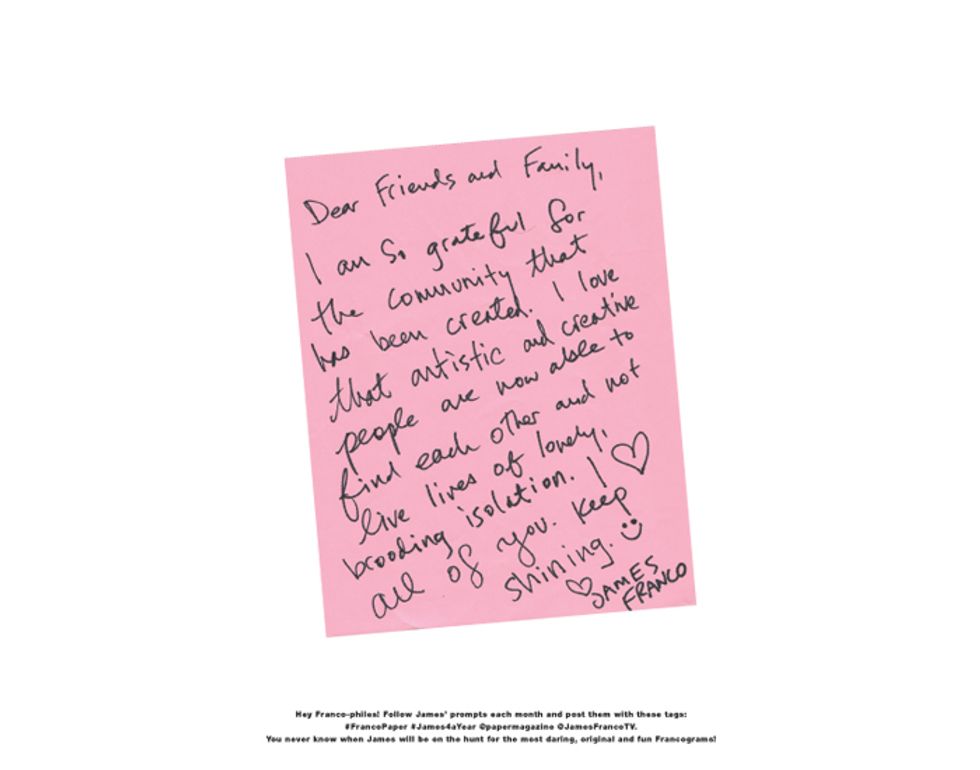 Dear Friends and Family,
I am So grateful for
the community that
has been created. I love
that artistic and creative
people are now able to
find each other and not
live lives of lonely,
brooding isolation. I ♡
all of you. Keep
shining. :)
♡ JAMES
FRANCO
Hey Franco-philes! Follow James' prompts each month and post them with these tags:
#FrancoPaper #James4aYear @papermagazine @JamesFrancoTV.
You never know when James will be on the hunt for the most daring, original and fun Francograms!